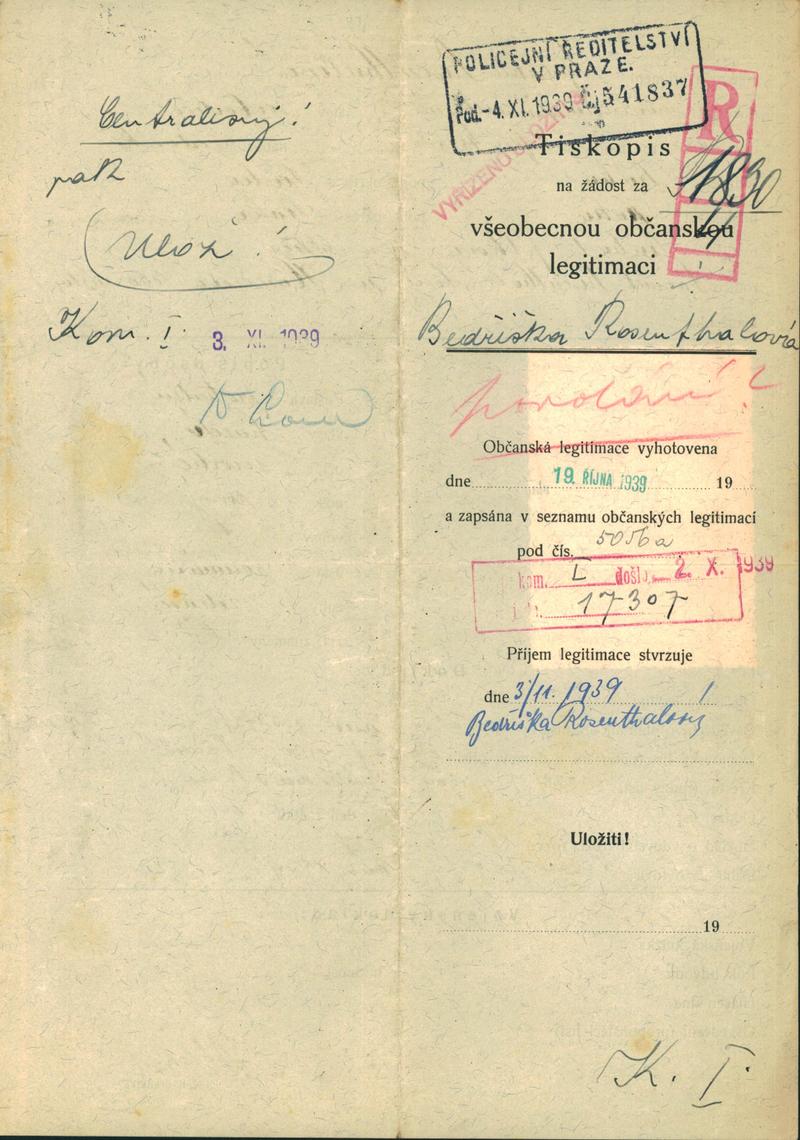 Centralisuj!
pak
Ulož!
Kom. I.
3. XI. 1939
POLICEJNÍ ŘEDITELSTVÍ
V PRAZE.
Pod. -4. XI. 1939 Čj 541837
R
VYŘÍZENO
Tiskopis
na žádost za
1830
4
všeobecnou občanskou
legitimaci
Bedřiška Rosenthalová
povolání?
Občanská legitimace vyhotovena
dne 19. ŘÍJNA 1939 19
a zapsána v seznamu občanských legitimací
pod čís. 5056a
kom. I došlo 2. X. 1939
17307
Příjem legitimace stvrzuje
dne 3/11. 1939
Bedřiška Rosenthalová
Uložiti!
19
K. I.